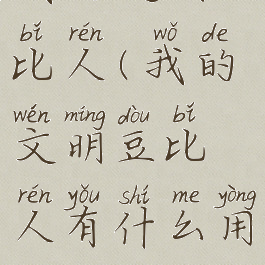 bǐ rén wǒ de
比人(我的
wén míng dòu bǐ
文明豆比
rén yǒu shí me yòng
人有什么用